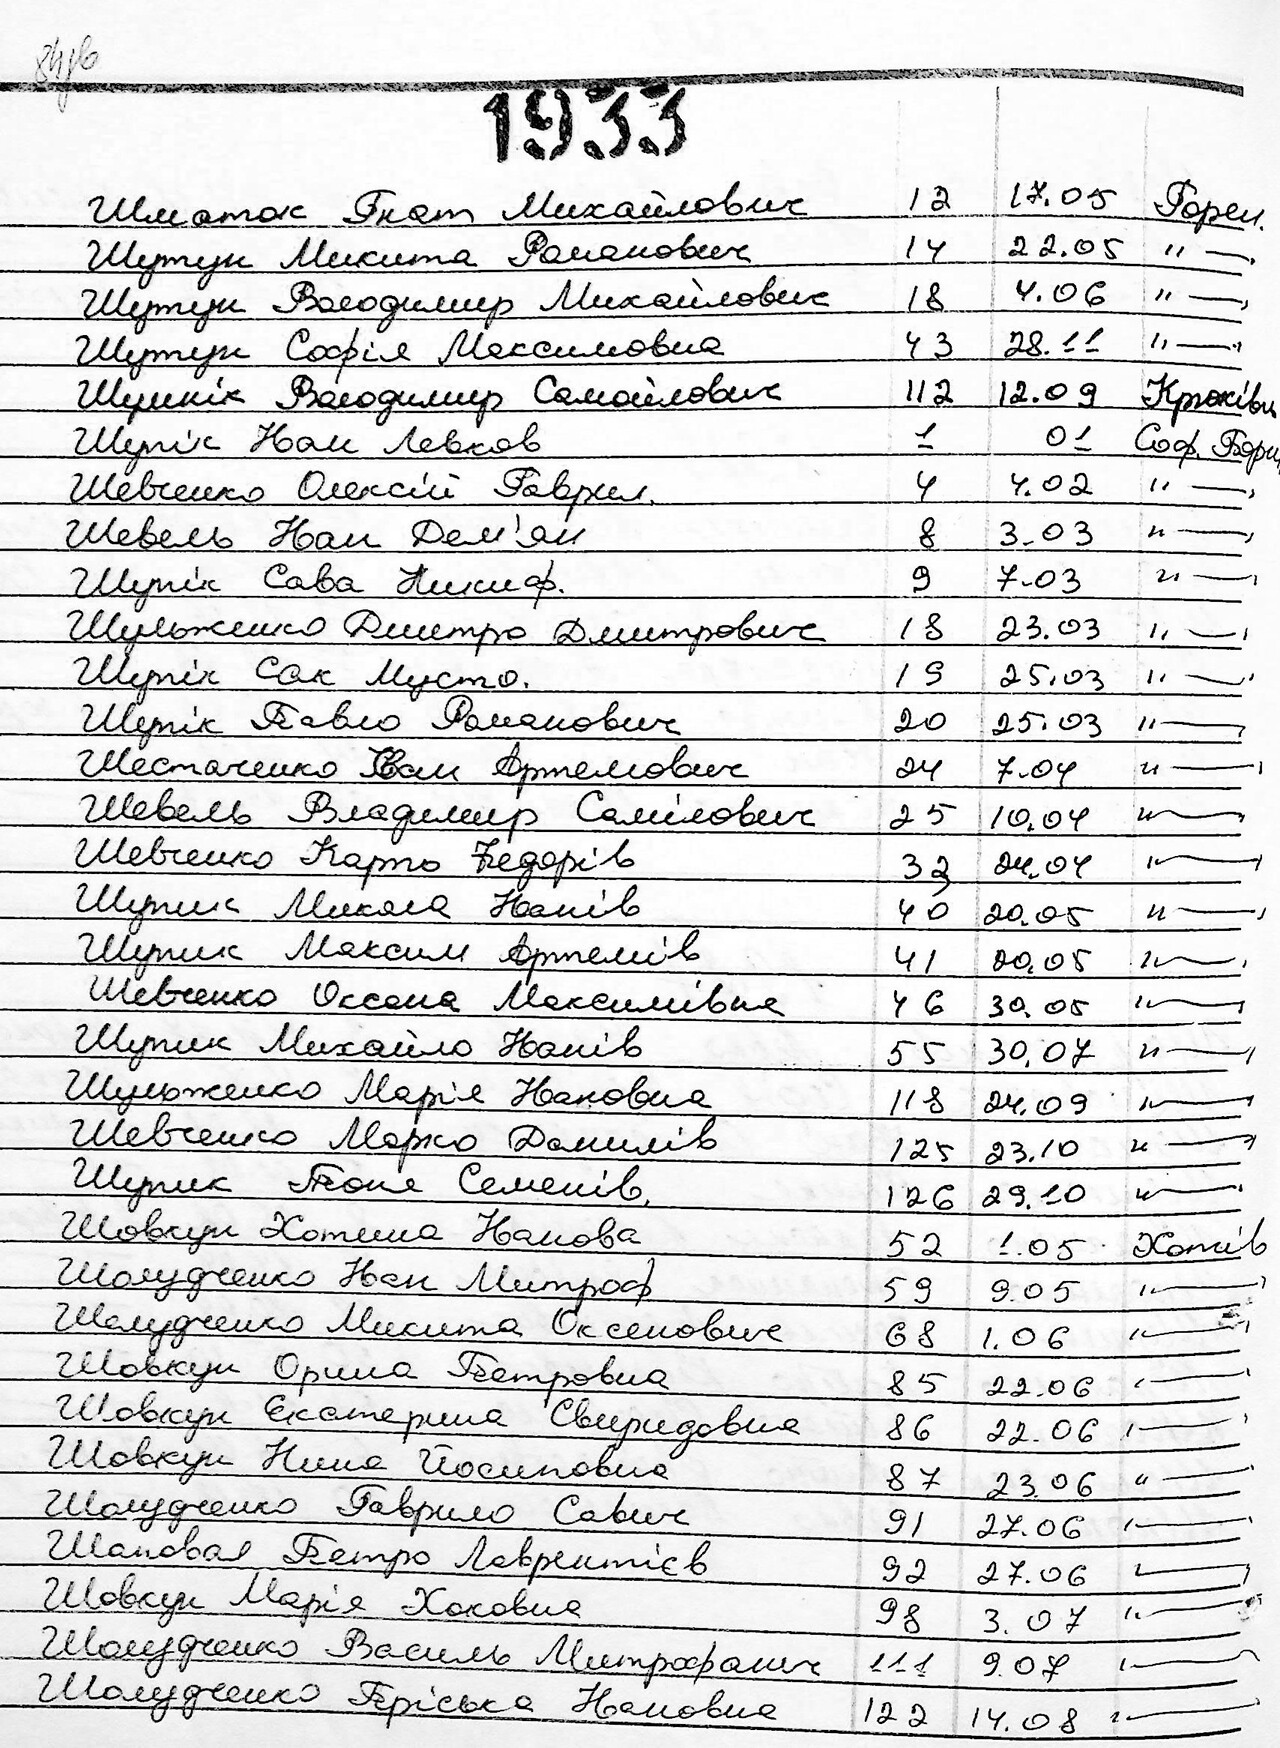 1933
Шматок Гнат Михайлович 12 17.05 Горен.
Шутун Микита Романович 14 22.05 "—
Шутун Володимир Михайлович 18 4.06 "—
Шутун Софія Максимовна 43 28.11 "—
Шумнік Володимир Самойлович 112 12.09 Крюківщ
Шупік Іван Левков 1 01 Соф. Борщ
Шевченко Олексій Гаврил. 4 4.02 "—
Шевель Іван Дем'ян 8 3.03 "—
Шупік Сава Никиф. 9 7.03 "—
Шульженко Дмитро Дмитрович 18 23.03 "—
Шупік Сак Мусто. 19 25.03 "—
Шупік Павло Романович 20 25.03 "—
Шестаченко Іван Артемович 24 7.04 "—
Шевель Владимир Самілович 25 10.04 "—
Шевченко Карпо Федорів 32 24.04 "—
Шупик Микола Іванів 40 20.05 "—
Шупик Максим Артемів 41 20.05 "—
Шевченко Оксана Максимівна 46 30.05 "—
Шупик Михайло Іванів 55 30.07 "—
Шульженко Марія Івановна 118 24.09 "—
Шевченко Марко Данилів 125 23.10 "—
Шупик Поля Семенів. 126 29.10 "—
Шовкун Хотина Іванова 52 1.05 Хотів
Шолудченко Іван Митроф 59 9.05 "—
Шелудченко Микита Оксенович 68 1.06 "—
Шовкун Орина Петровна 85 22.06 "—
Шовкун Екатерина Свиридовна 86 22.06 "—
Шовкун Нина Йосиповна 87 23.06 "—
Шолудченко Гаврило Савич 91 27.06 "—
Шаповал Петро Лаврентієв 92 27.06 "—
Шовкун Марія Хоковна 98 3.07 "—
Шолудченко Василь Митрофанич 111 9.07 "—
Шолудченко Пріська Івановна 122 14.08 "—